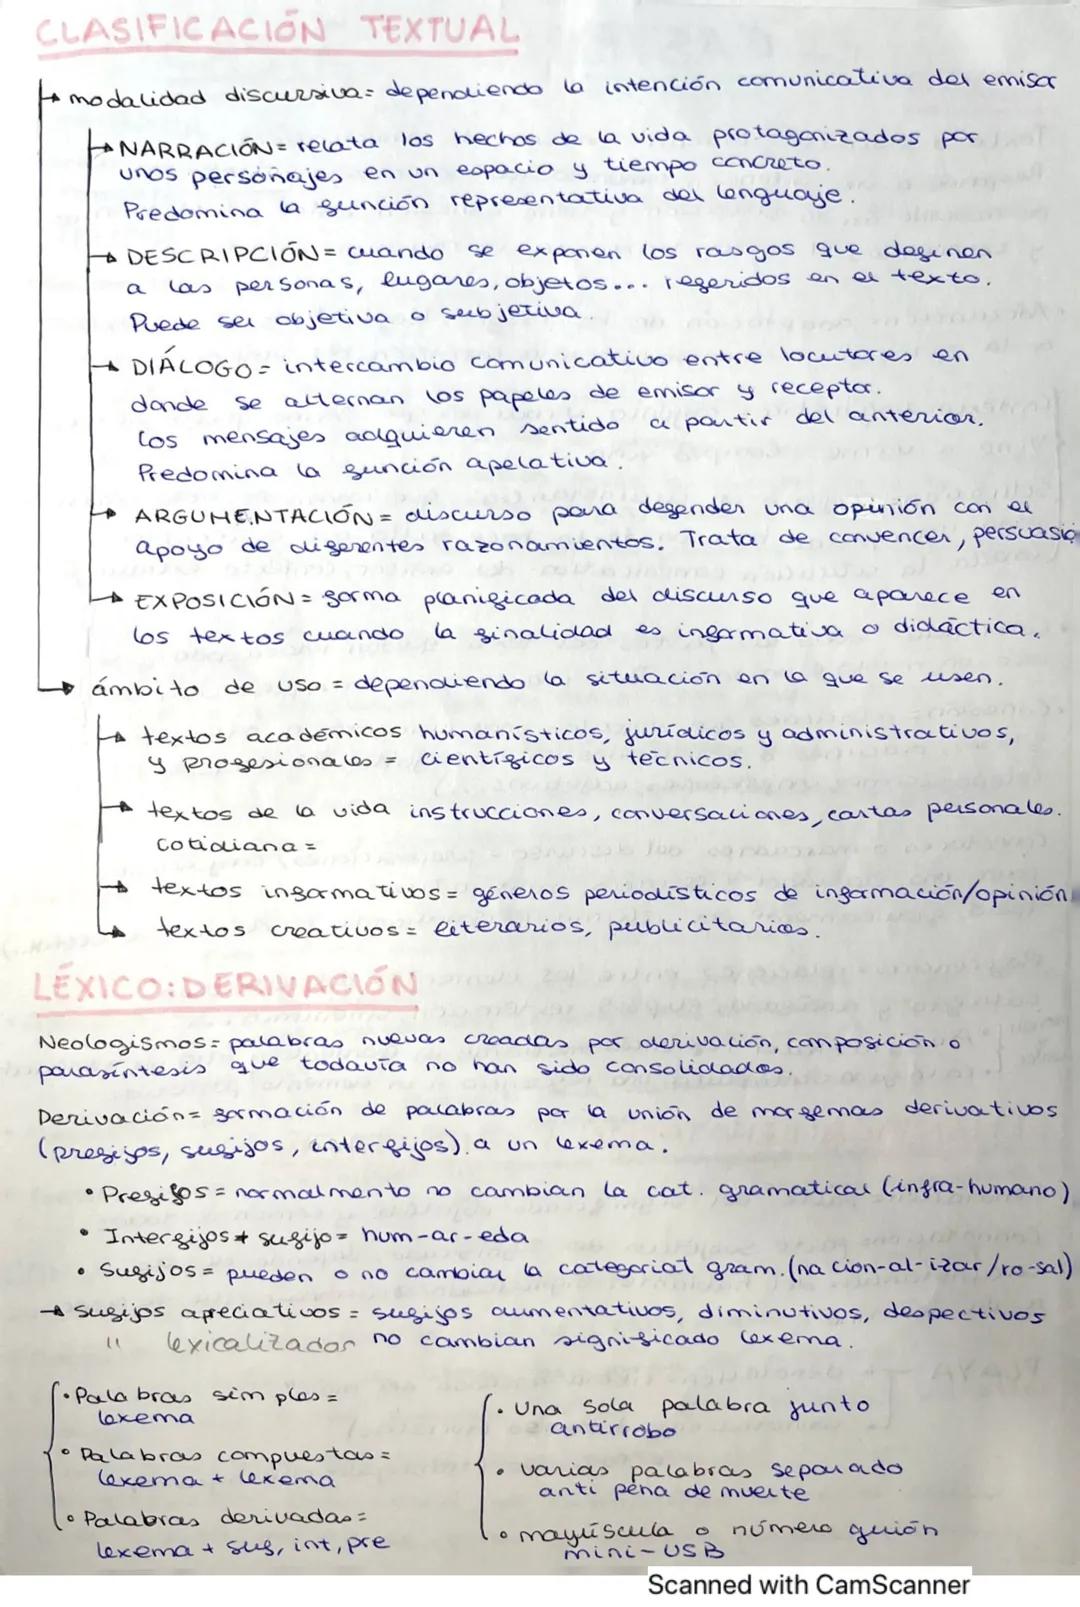 CLASIFICACIÓN TEXTUAL
modalidad discursiva= dependiendo la intención comunicativa del emisor
NARRACIÓN= relata los hechos de la vida protagonizados por
unos personajes en un espacio y tiempo concreto.
Predomina la función representativa del lenguaje.
DESCRIPCIÓN= cuando se exponen los rasgos que definen
a las personas, lugares, objetos... referidos en el texto.
Puede ser objetiva o subjetiva.
DIÁLOGO= intercambio comunicativo entre locutores en
donde se alternan los papeles de emisor y receptor.
Los mensajes adquieren sentido a partir del anterior.
Predomina la función apelativa.
ARGUMENTACIÓN= discurso para defender una opinión con el
apoyo de diferentes razonamientos. Trata de convencer, persuasió
EXPOSICIÓN= forma planificada del discurso que aparece en
los textos cuando la finalidad es informativa o didáctica.
ámbito de uso = dependiendo la situación en la que se usen.
textos académicos humanísticos, jurídicos y administrativos,
y profesionales = científicos y técnicos.
textos de la vida instrucciones, conversaciones, cartas personales.
cotidiana =
textos informativos= géneros periodísticos de información/opinión
textos creativos= literarios, publicitarios.
LÉXICO: DERIVACIÓN
Neologismos= palabras nuevas creadas por derivación, composición o
parasíntesis que todavía no han sido consolidados.
Derivación= formación de palabras por la unión de morfemas derivativos
(prefijos, sufijos, interfijos) a un lexema.
• Prefijos = normalmento no cambian la cat. gramatical (infra-humano)
• Interfijos + sufijo= hum-ar-eda
• Sufijos= pueden o no cambiar la categorial gram. (nacion-al-izar/ro-sal)
→ sufijos apreciativos = sufijos aumentativos, diminutivos, despectivos
" lexicalizador no cambian significado lexema.
• Palabras simples=
lexema
• Palabras compuestas=
lexema + lexema
• Palabras derivadas=
lexema + suf, int, pre
• Una sola palabra junto
antirrobo
• varias palabras separado
anti pena de muerte
• mayúscula o número guión
mini-USB
Scanned with CamScanner